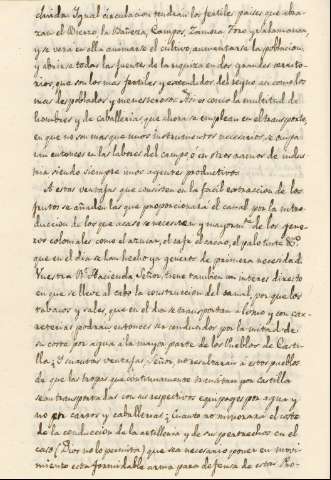 chirdn. Igual circulacion tendran los fertiles paises que abra-
zan el Vierzo la Bañeza, Campos, Zamora Toro y Salamanca
y se verá en ella animarse el cultivo, aumentarse la poblacion,
y abrirse todas las fuentes de la riqueza en dos grandes territo-
rios, que son los mas fertiles y estendidos del reyno asi como los
mas despoblados y menesterosos. Pues como la multitud de
hombres y de caballerias que ahora se emplean en el transporte,
en que no son mas que unos instrumentos necesarios, se emplea-
ran entonces en las labores del campo, ó en otros ramos de indus-
tria siendo siempre unos agentes productivos.
A estas ventajas que consisten en la facil extraccion de los
frutos se añaden las que proporcionará el canal por la intro-
duccion de los que acaso se necesiten y mayorm.te de los gene-
ros coloniales como el azucar, el café el cacao, el palo tinte &c.
que en el dia se han hecho ya generos de primera necesidad.
Vuestra R.l Hacienda Señor, tiene tambien un interes directo
en que se lleve al cabo la construccion del canal, por que los
tabacos y sales, que en el dia se transportan á lomo y con car-
reterias podrán entonces ser conducidos por la mitad de
su coste por agua á la mayor parte de los Pueblos de Casti-
lla ¿Y cuantas ventajas Señor, no resultarán a estos pueblos
de que las tropas que continuamente transitan por Castilla
sean transportadas con sus respectivos equipages por agua y
no en carros y caballerias? ¿Cuanto no minorará el coste
de la conduccion de la artilleria y de sus pertrechos en el
caso (Dios no lo permita) que sea necesario poner en movi-
miento esta formidable arma para defensa de estas Pro-